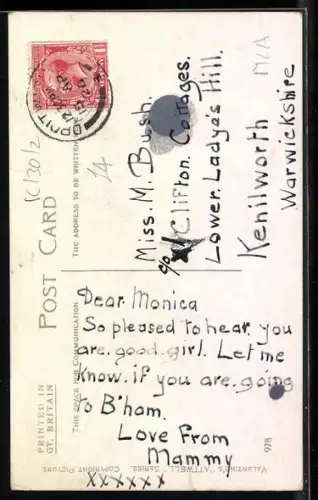 POST CARD
THE ADDRESS TO BE WRITTEN
THIS SPACE FOR COMMUNICATION
PRINTED IN
GT. BRITAIN
K/30/2
14
Miss. M. Bush.
c/o 1 Clifton. Cottages.
Lower. Ladyes Hill.
Kenilworth
Warwickshire
Dear Monica
So pleased to hear. you
are. good. girl. Let me
know. if you are. going
to B'ham.
Love From
Mammy
xxxxxx
VALENTINE'S "ATTWELL" SERIES. COPYRIGHT PICTURE
978